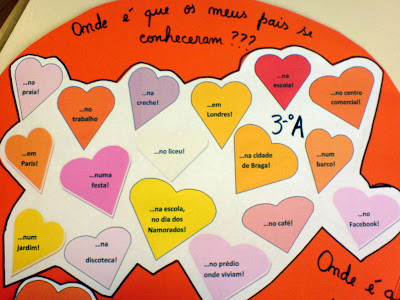 Onde é que os meus pais se
conheceram ???
...na
praia!
...no
trabalho
...na
creche!
...em
Londres!
...na
escola!
...no centro
comercial!
3-ºA
...em
Paris!
...numa
festa!
...no liceu!
...na cidade
de Braga!
...num
barco!
...num
jardim!
...na
discoteca!
...na escola,
no dia dos
Namorados!
...no prédio
onde viviam!
...no café!
...no
Facebook!
Onde é q